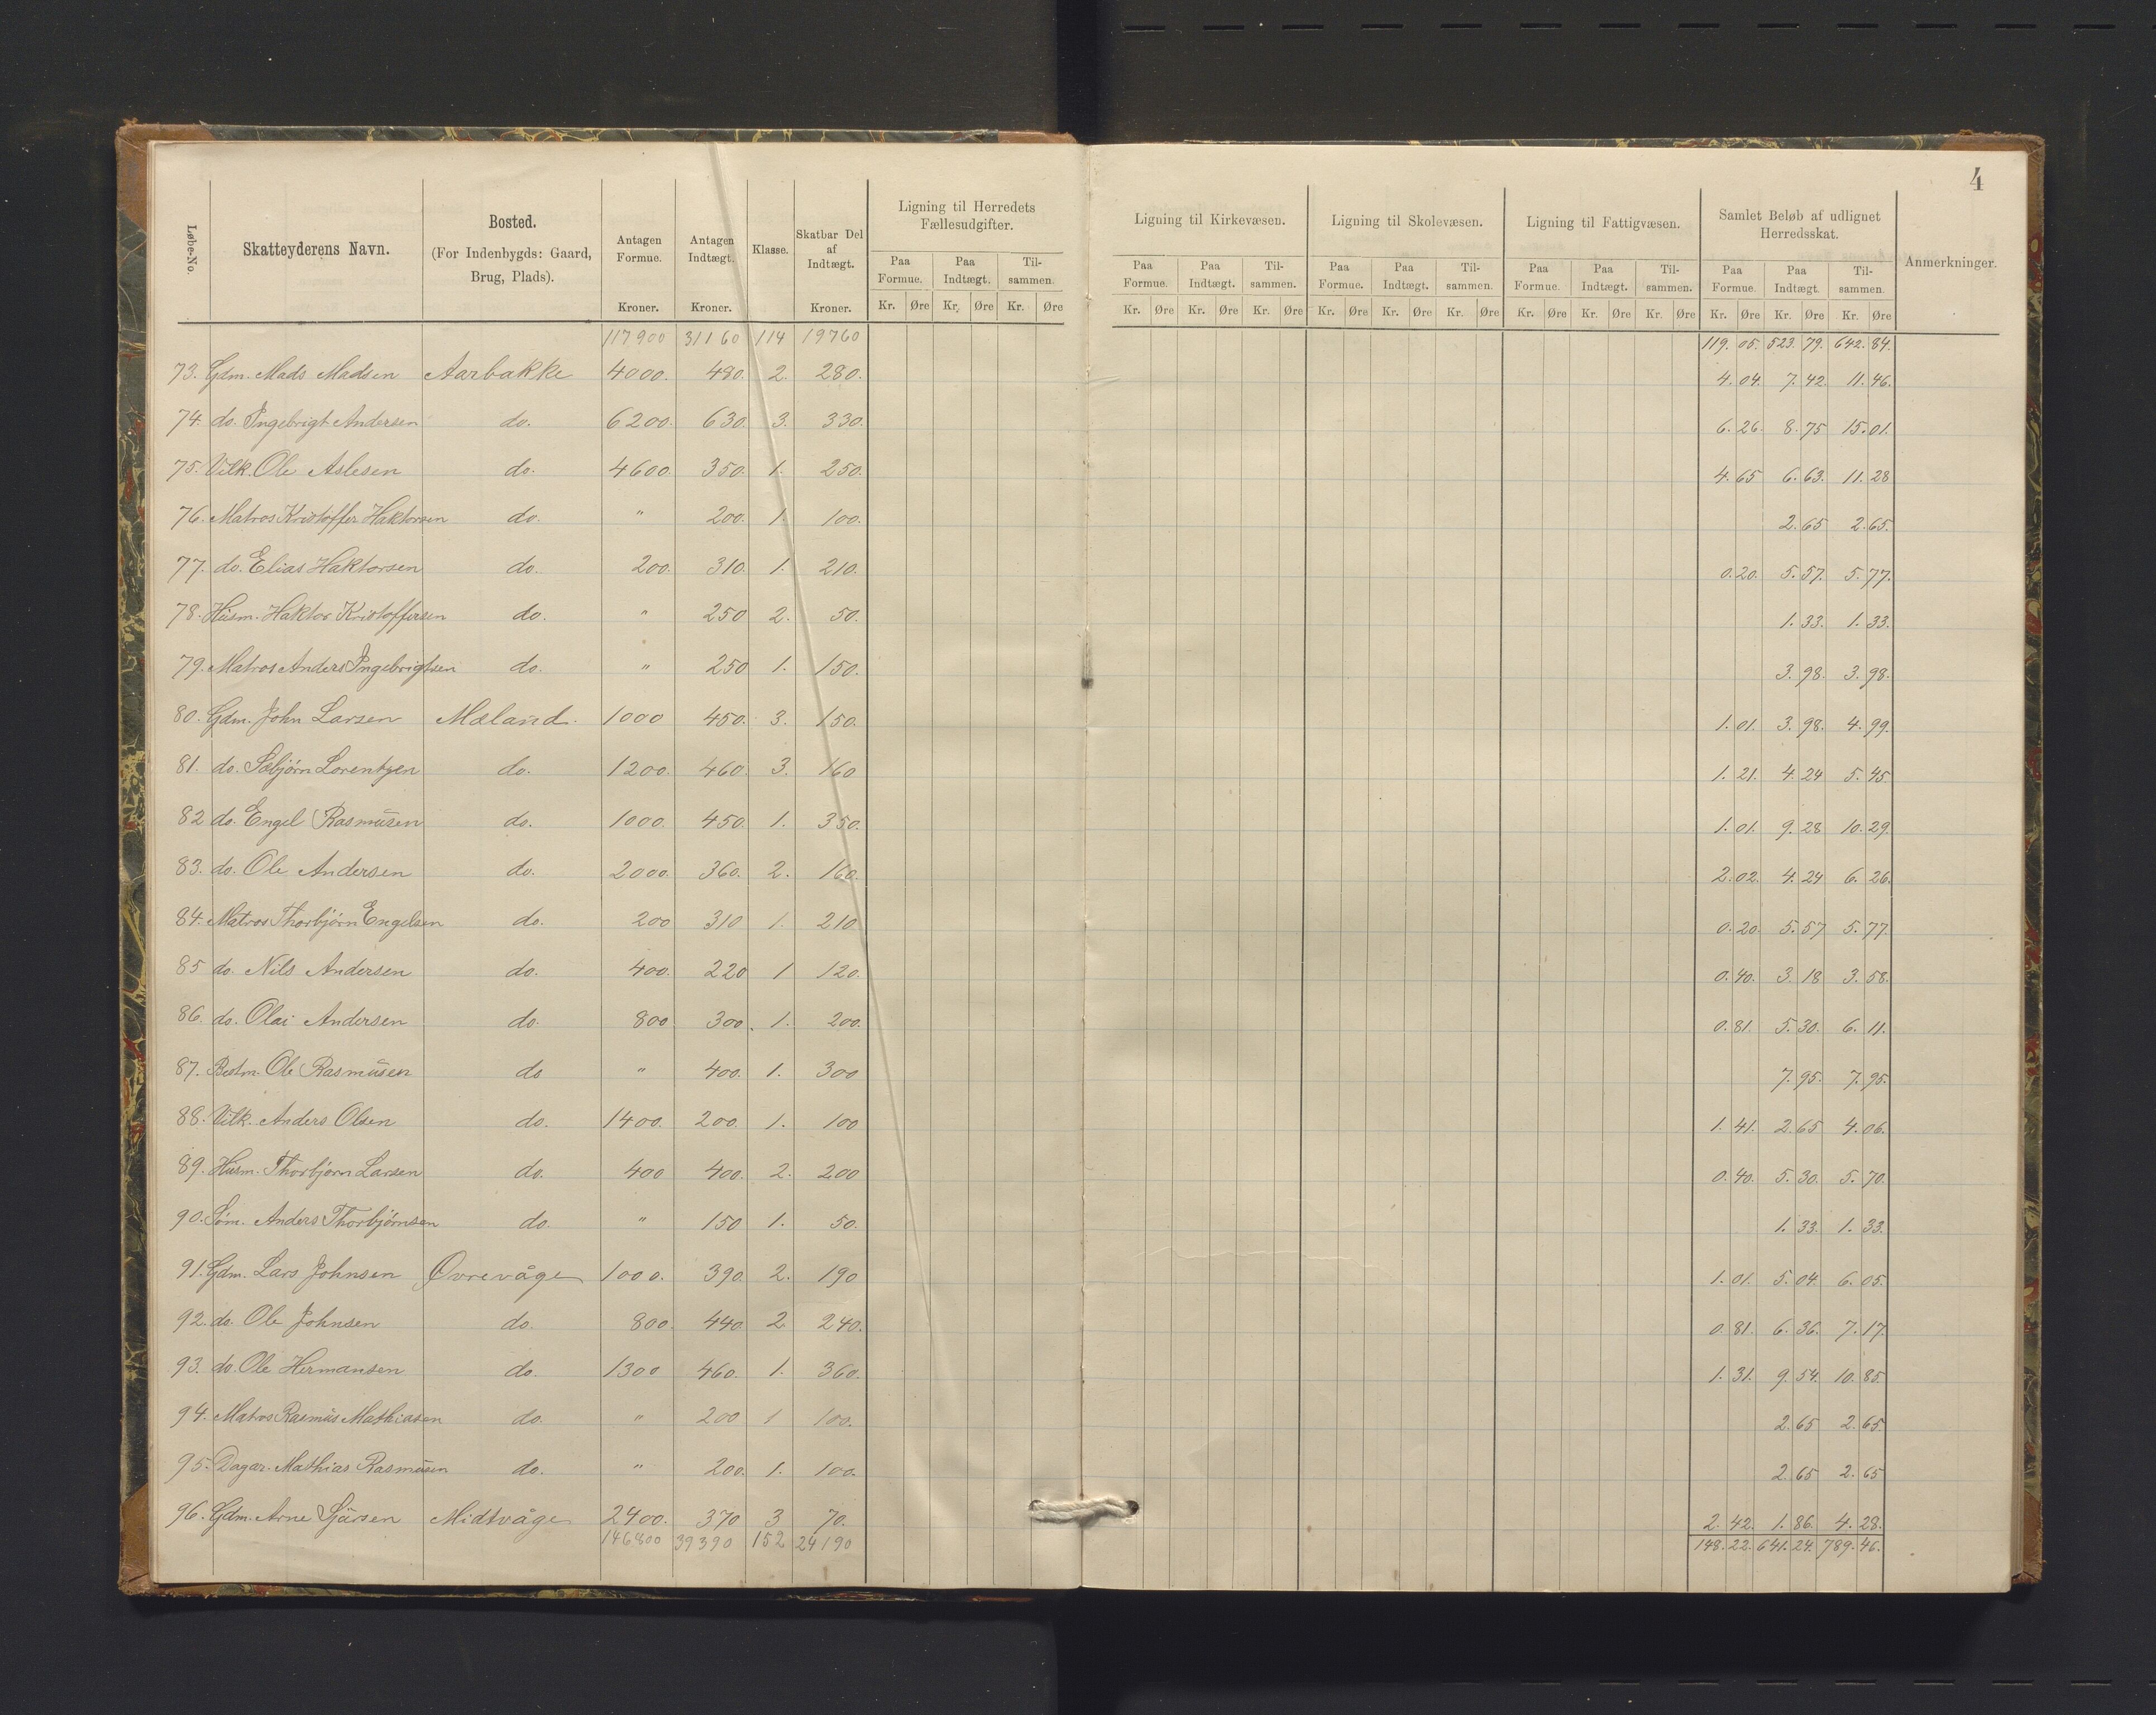 4
Løbe-No.
Skatteyderens Navn.
Bosted.
(For Indenbygds: Gaard,
Brug, Plads).
Antagen
Formue.
Kroner.
Antagen
Indtægt.
Kroner.
Klasse.
Skatbar Del
af
Indtægt.
Kroner.
Ligning til Herredets
Fællesudgifter.
Paa Formue. Paa Indtægt. Til- sammen.
Kr. Øre Kr. Øre Kr. Øre
Ligning til Kirkevæsen.
Paa Formue. Paa Indtægt. Til- sammen.
Kr. Øre Kr. Øre Kr. Øre
Ligning til Skolevæsen.
Paa Formue. Paa Indtægt. Til- sammen.
Kr. Øre Kr. Øre Kr. Øre
Ligning til Fattigvæsen.
Paa Formue. Paa Indtægt. Til- sammen.
Kr. Øre Kr. Øre Kr. Øre
Samlet Beløb af udlignet
Herredsskat.
Paa Formue. Paa Indtægt. Til- sammen.
Kr. Øre Kr. Øre Kr. Øre
Anmerkninger.
117900 31160 114 19760 119. 05. 523. 79. 642. 84.
73. Gdm. Mads Madsen Aarbakke 4000. 480. 2. 280. 4. 04. 7. 42. 11. 46.
74. do. Ingebrigt Andersen do. 6200. 630. 3. 330. 6. 26. 8. 75 15. 01.
75. Vilk. Ole Aslesen do. 4600. 350. 1. 250. 4. 65 6. 63. 11. 28
76. Matros Kristoffer Haktorsen do. " 200. 1. 100. 2. 65 2. 65.
77. do. Elias Haktorsen do. 200. 310. 1. 210. 0. 20. 5. 57. 5. 77.
78. Husm. Haktor Kristoffersen do. " 250 2. 50. 1. 33. 1. 33.
79. Matros Anders Ingebrigtsen do. " 250 1. 150. 3. 98. 3. 98.
80. Gdm. John Larsen Mæland. 1000 450. 3. 150. 1. 01. 3. 98. 4. 99.
81. do. Sæbjörn Lorentzen do. 1200. 460. 3. 160 1. 21. 4. 24 5. 45
82 do. Engel Rasmusen do. 1000. 450. 1. 350. 1. 01. 9. 28 10. 29.
83. do. Ole Andersen do. 2000. 360. 2. 160. 2. 02. 4. 24 6. 26.
84. Matros Thorbjörn Engelsen do. 200 310 1. 210 0. 20 5. 57 5. 77.
85 do. Nils Andersen do. 400. 220 1 120. 0. 40. 3. 18 3. 58.
86. do. Olai Andersen do. 800 300. 1. 200. 0. 81. 5. 30. 6. 11.
87. Bestm. Ole Rasmusen do " 400. 1. 300 7. 95. 7. 95.
88. Vilk. Anders Olsen do. 1400. 200. 1. 100 1. 41. 2. 65 4. 06.
89. Husm. Thorbjörn Larsen do. 400 400. 2. 200 0. 40. 5. 30. 5. 70.
90. Söm. Anders Thorbjörnsen do. " 150 1. 50. 1. 33. 1. 33.
91. Gdm. Lars Johnsen Øvrevåge 1000. 390. 2. 190 1. 01. 5. 04. 6. 05.
92. do. Ole Johnsen do. 800. 440 2. 240. 0. 81. 6. 36. 7. 17.
93. do. Ole Hermansen do. 1300 460. 1. 360. 1. 31. 9. 54. 10. 85.
94. Matros Rasmus Mathiasen do. " 200 1 100. 2. 65 2. 65
95. Dagar. Mathias Rasmusen do. " 200. 1. 100. 2. 65 2. 65
96. Gdm. Arne Sjursen Midtvåge 2400. 370 3 70. 2. 42. 1. 86. 4. 28.
146800 39390 152 24190 148. 22. 641. 24. 789. 46.